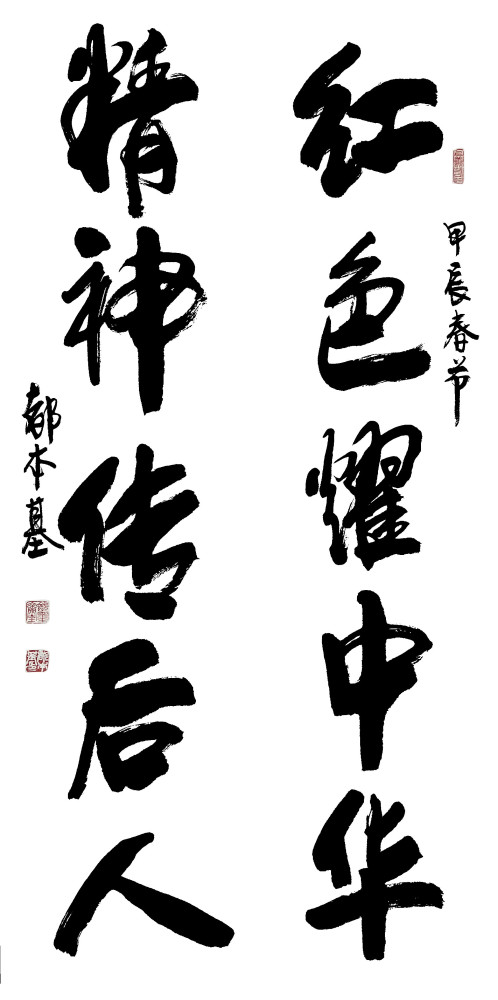 甲辰春节
红色耀中华
精神传后人
都本基